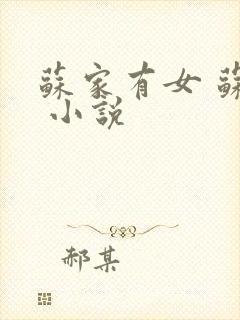 蘇家有女 蘇
小說
郝某